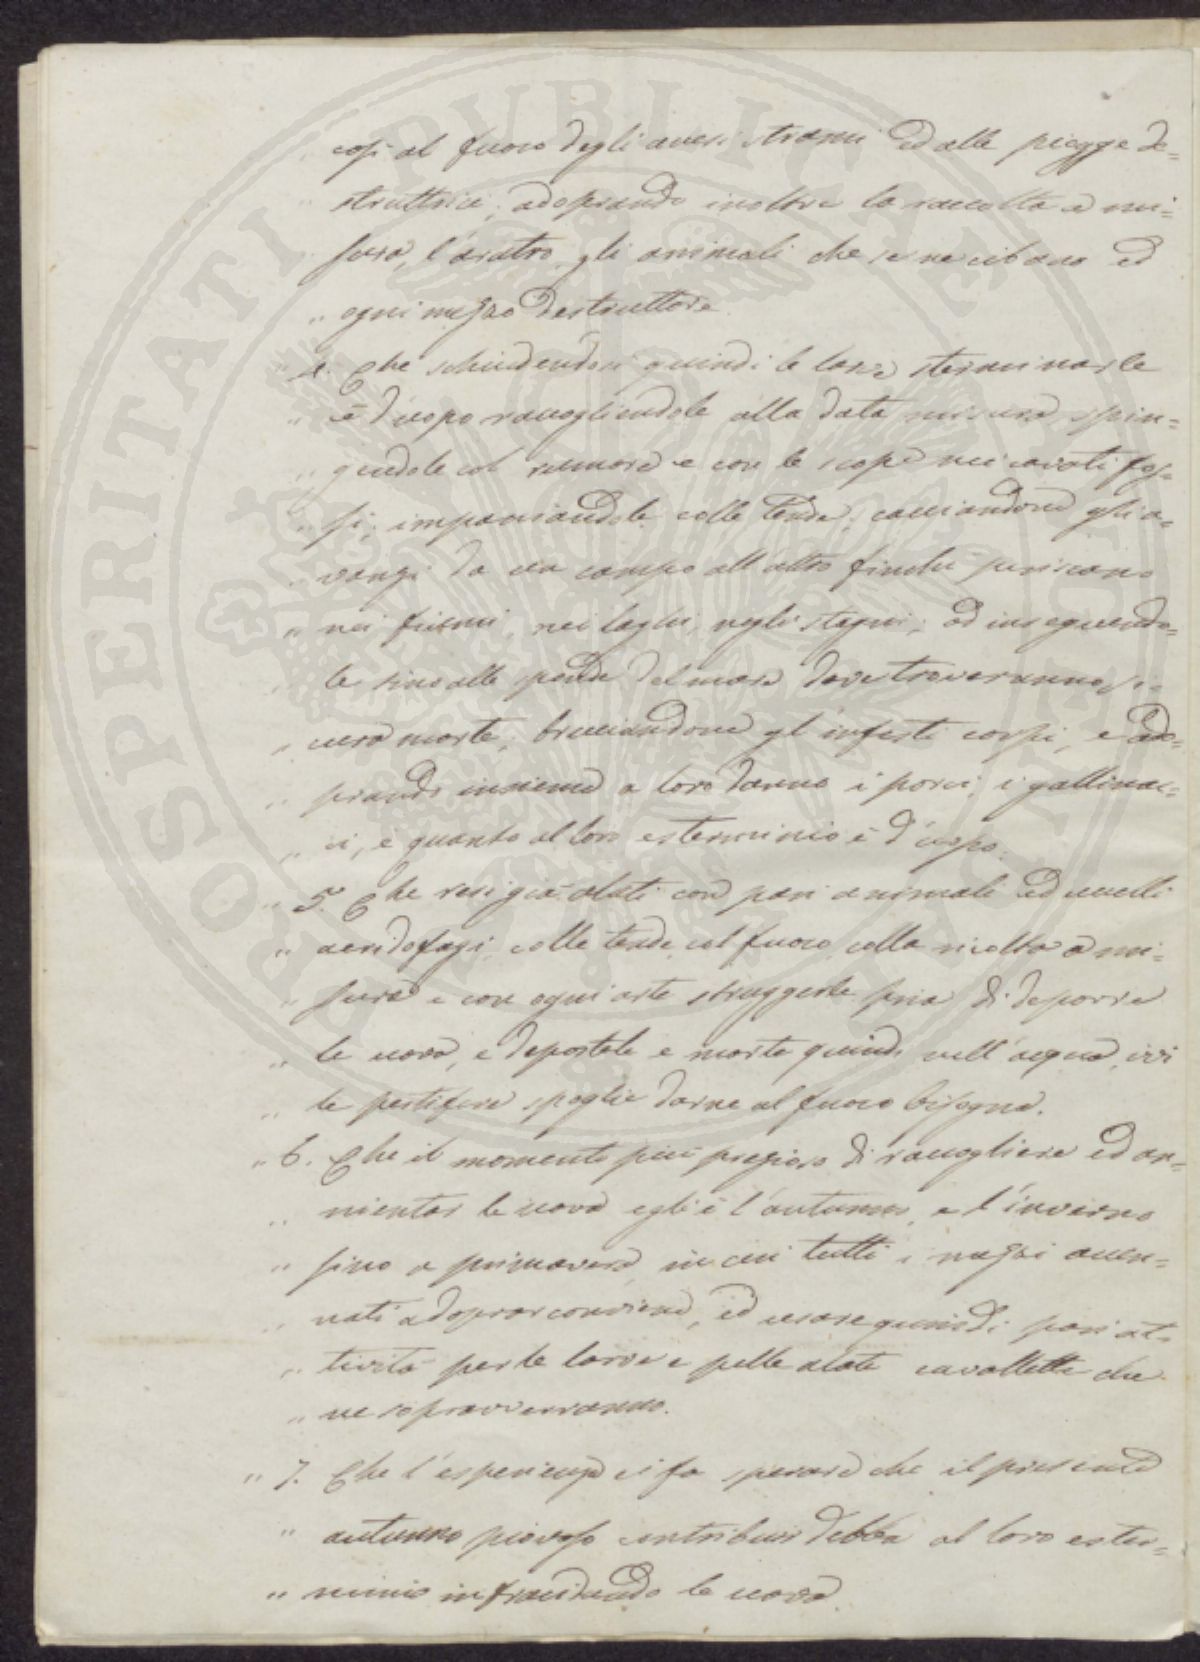 così al fuoco degli accesi strami ed alle piogge de=
struttrici, adoprando inoltre la raccolta a mi=
sura, l'aratro, gli animali che se ne cibano ed
" ogni mezzo destruttore.
" 4. Che schiudendosi quindi le larve sterminarle
" è d'uopo raccogliendole alla data misura, spin=
" gendole col rumore e con le scope nei cavati fos=
" si, impaniandole colle tende, cacciandone gli a=
" vanzi da un campo all'altro finché periscano
" nei fiumi, nei laghi, negli stagni, ed inseguendo=
le sino alle sponde del mare dove troveranno si=
" cura morte, bruciandone gl'infesti corpi, e ado=
" prando insieme a loro danno i porci, i gallinac=
" ci, e quanto al loro esterminio è d'uopo.
" 5. Che resi già alati con pari animali ed uccelli
" acridofagi, colle tende, col fuoco, colla ricolta a mi=
" sura e con ogni arte struggerle pria di deporre
" le uova, e depostele e morte quindi nell'acqua, ivi
" le pestifere spoglie darne al fuoco bisogna.
" 6. Che il momento più prezioso di raccogliere ed an=
" nientar le uova egli è l'autunno, e l'inverno
" sino a primavera, in cui tutti i mezzi accen=
" nati adoprar conviene, ed usare quindi pari at=
" tività per le larve e pelle alate cavallette che
" ne sopravverranno.
" 7. Che l'esperienza ci fa sperare che il presente
" autunno piovoso contribuir debba al loro ester=
" minio infracidando le uova.
PROSPERITATI PUBLICAE AUGENDAE